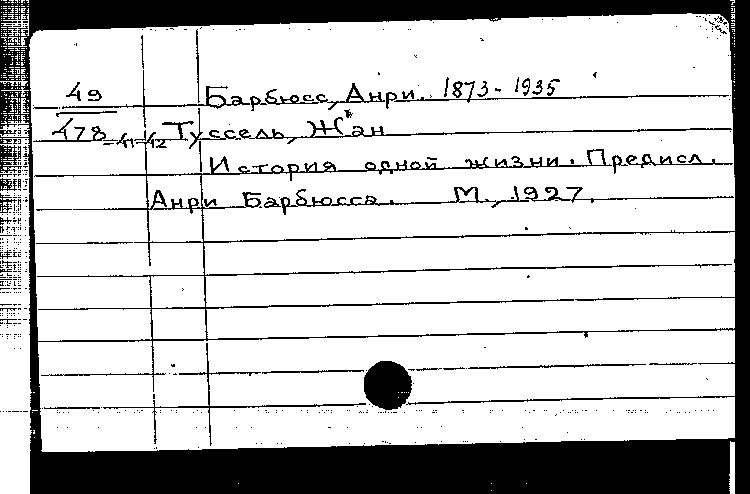 49 Барбюсс, Анри. 1873-1935
478-41-42 Туссель, Жан
История одной жизни. Предисл.
Анри Барбюсса. М., 1927.